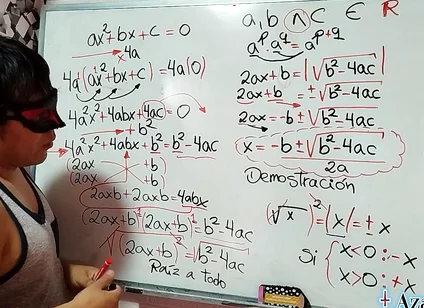 ax² + bx + c = 0
x4a
4a(ax² + bx + c) = 4a(0)
4a²x² + 4abx + 4ac = 0
+ b²
4a²x² + 4abx + b² = b² - 4ac
(2ax + b)
(2ax + b)
2axb + 2axb = 4abx
(2ax+b)(2ax+b) = b² - 4ac
√(2ax+b)² = √b² - 4ac
Raíz a todo
a, b ∧ C ∈ R
a^p · a^q = a^(p+q)
2ax + b = |√b² - 4ac|
2ax + b = ±√b² - 4ac
2ax = -b ±√b² - 4ac
x = -b ± √b² - 4ac
2a
Demostración
(√x)² = |x| = ± x
Si { x<0 : - x
x>0 : + x